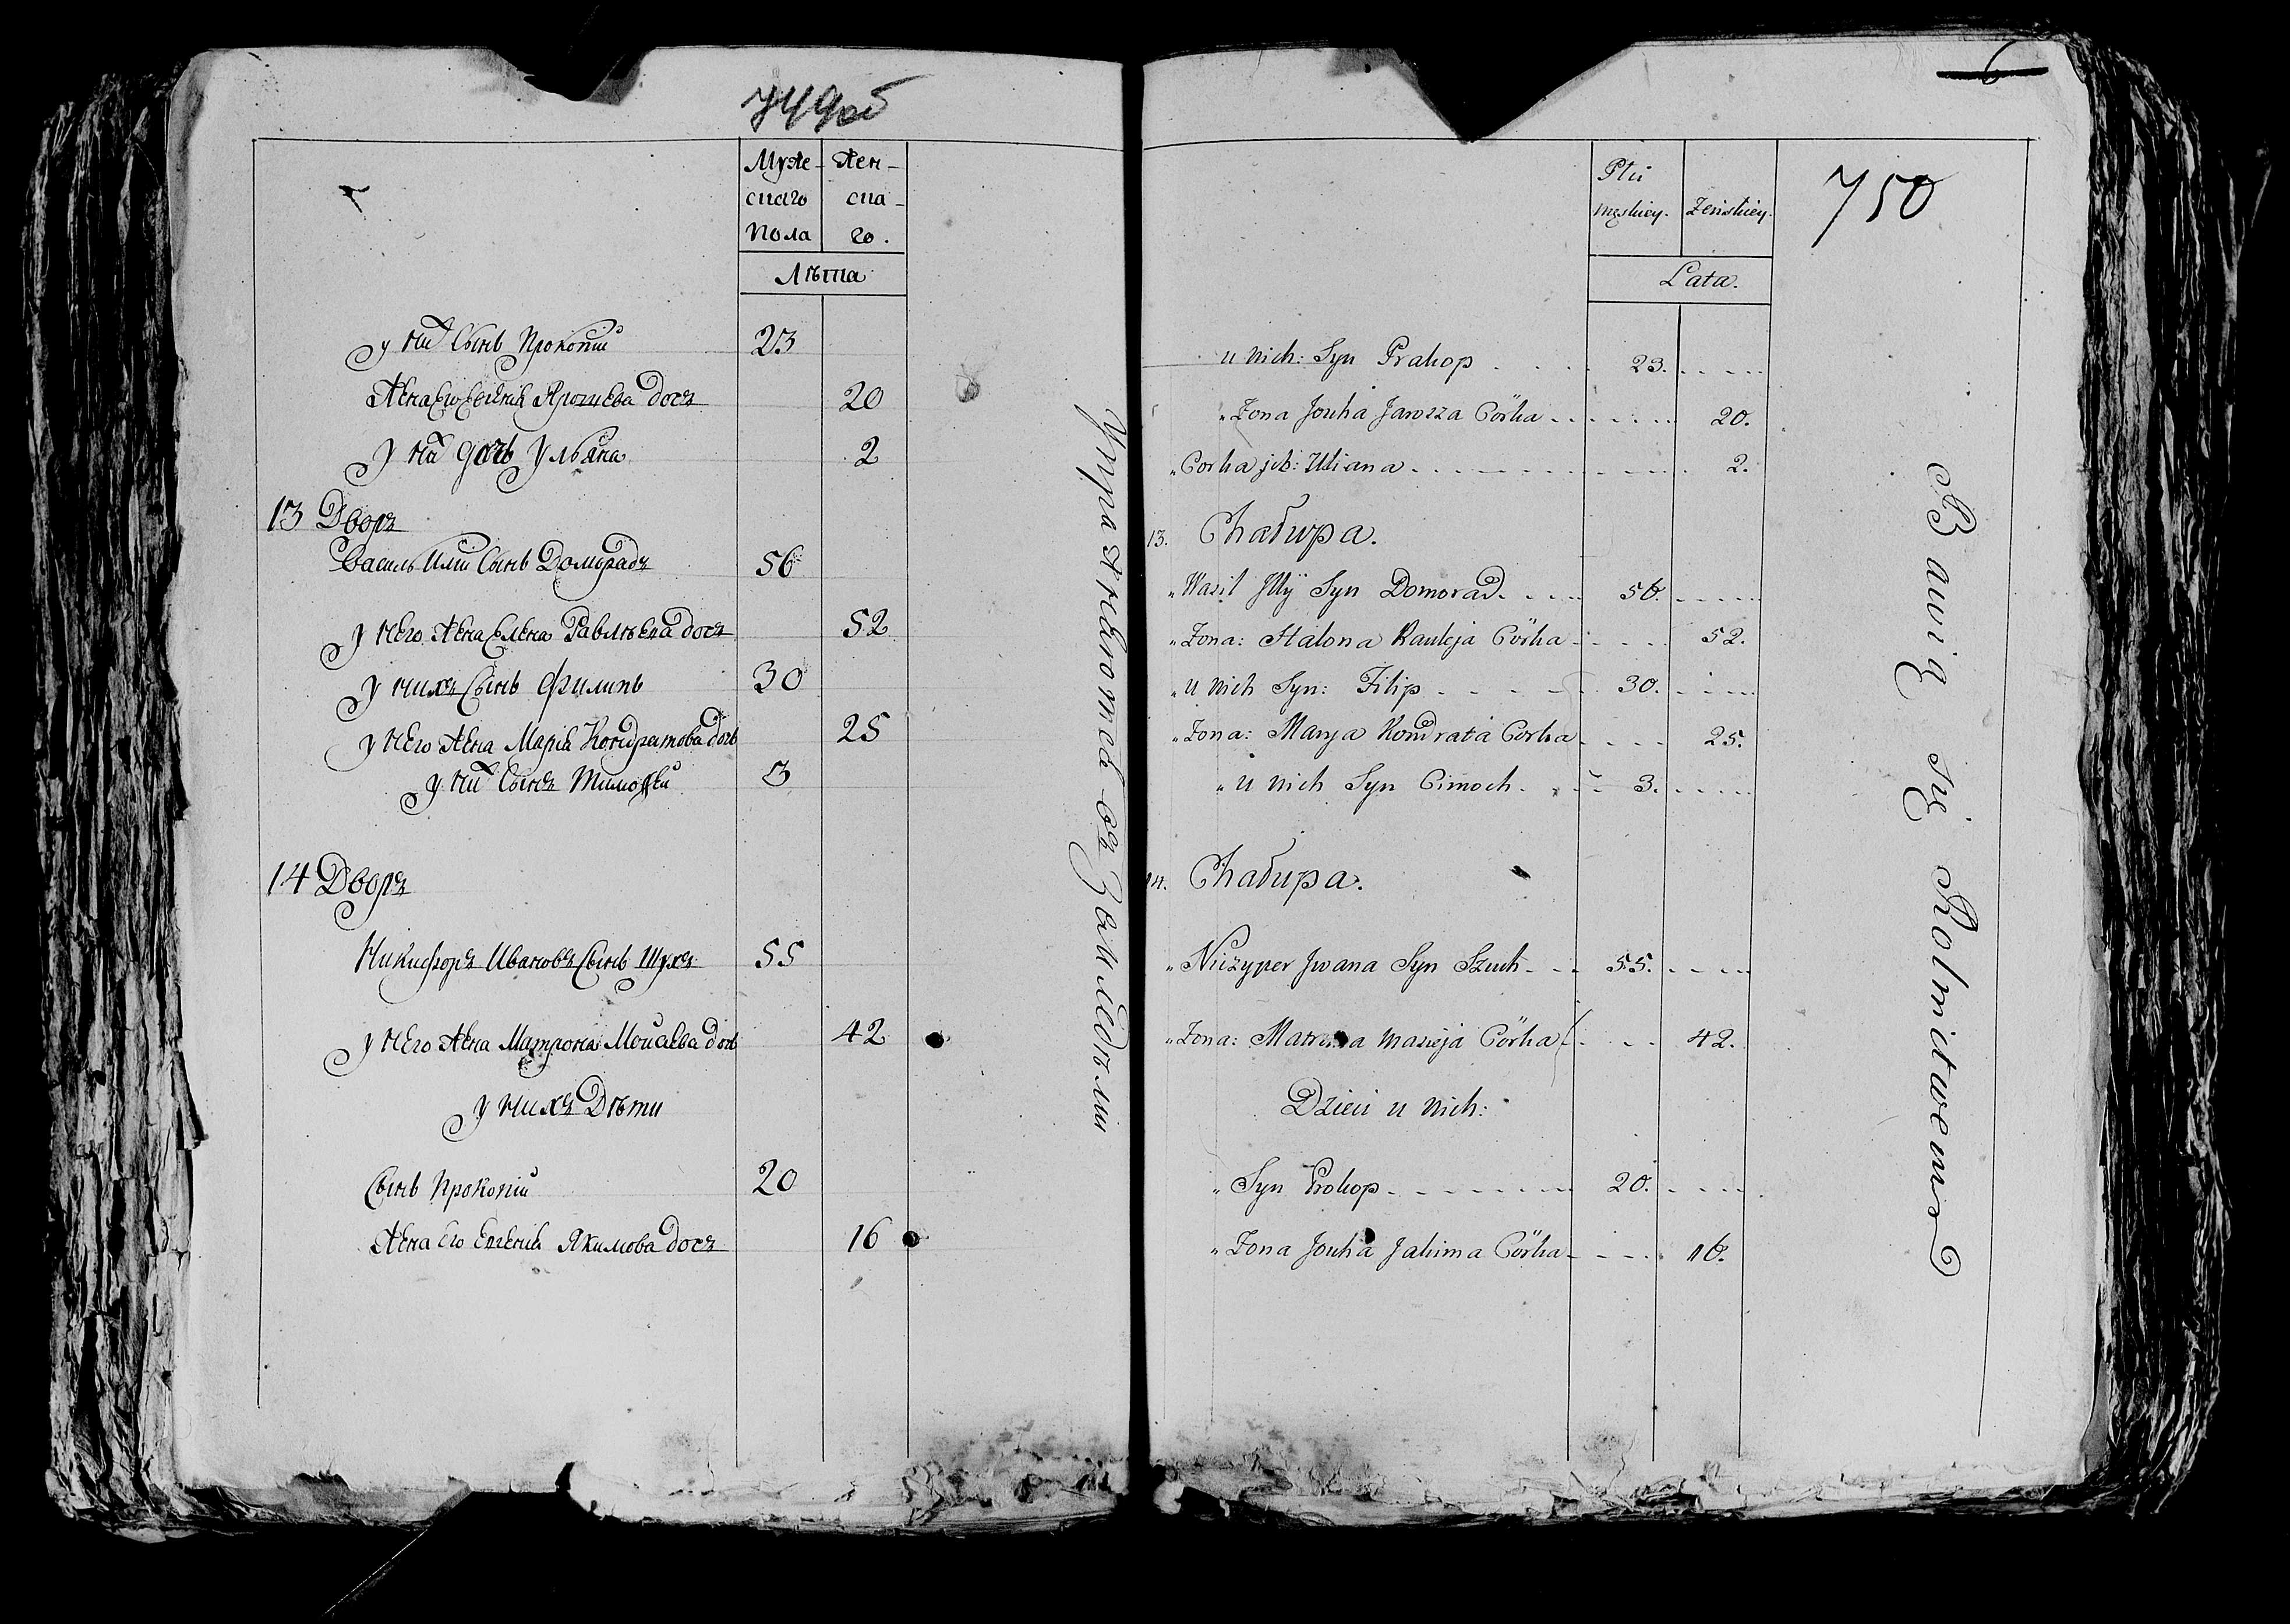 749об
Муже- Жен-
скаго ска-
пола го.
Лѣта
у них Сынъ Прокопий 23
Жена Его Евгения Ярошева дочь 20
у них дочь Ульяна 2
13 Дворъ
Василь Илии Сынъ Доморадъ 56
у Него Жена Елена Павлѣева дочь 52
у нихъ Сынъ Филипъ 30
у Него Жена Мария Кондратова дочь 25
у них Сынъ Тимофей 3
14 Дворъ
Никифоръ Ивановъ Сынъ Шухъ 55
у Него Жена Матрона Моисеева дочь 42
у нихъ Дѣти
Сынъ Прокопий 20
Жена Его Евгения Якимова дочь 16
Упражняются въ Земледѣлии
6
750
Płci
męskiey. Żeńskiey.
Lata.
u nich: Syn Prakop 23.
„ Żona Jouha Jarosza Córka 20.
„ Corka ich: Uliana 2.
13. Chałupa.
„ Wasil Illÿ Syn Domorad 56.
„ Żona: Halona Pauleja Córka 52.
„ u nich Syn: Filip 30.
„ Żona: Marya Kondrata Corka 25.
„ u nich Syn Cimoch 3.
14. Chałupa.
„ Niczyper Jwana Syn Szuch 55.
„ Żona: Matrona Masieja Córka 42.
Dzieci u nich:
„ Syn Prokop 20.
„ Żona Jouha Jakima Córka 16.
Bawią się Rolnictwem